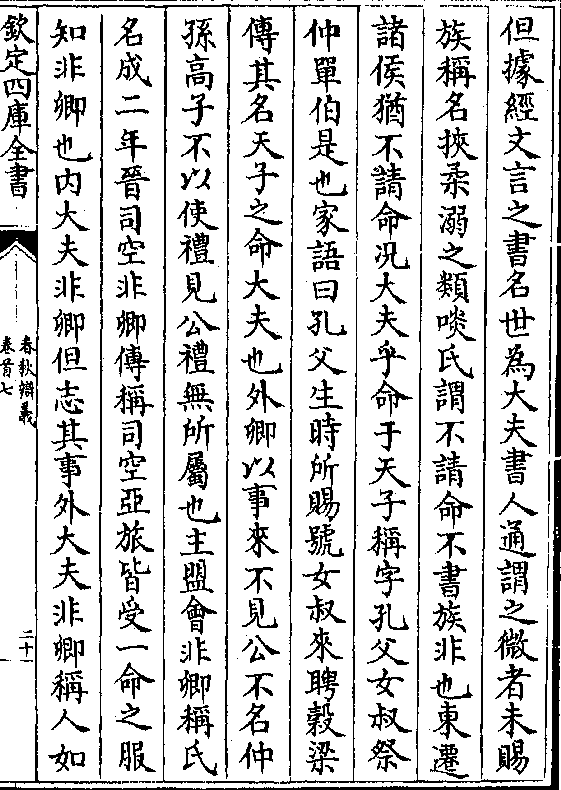 但據經文言之書名世為大夫書人通謂之微者未賜
族稱名挾柔溺之類啖氏謂不請命不書族非也東遷
諸侯猶不請命况大夫乎命于天子稱字孔父女叔祭
仲單伯是也家語曰孔父生時所賜號女叔來聘穀梁
傳其名天子之命大夫也外卿以事來不見公不名仲
孫高子不以使禮見公禮無所屬也主盟會非卿稱氏
名成二年晉司空非卿傳稱司空亞旅皆受一命之服
知非卿也内大夫非卿但志其事外大夫非卿稱人如
欽定四庫全書
春秋辯義
卷首七
二十